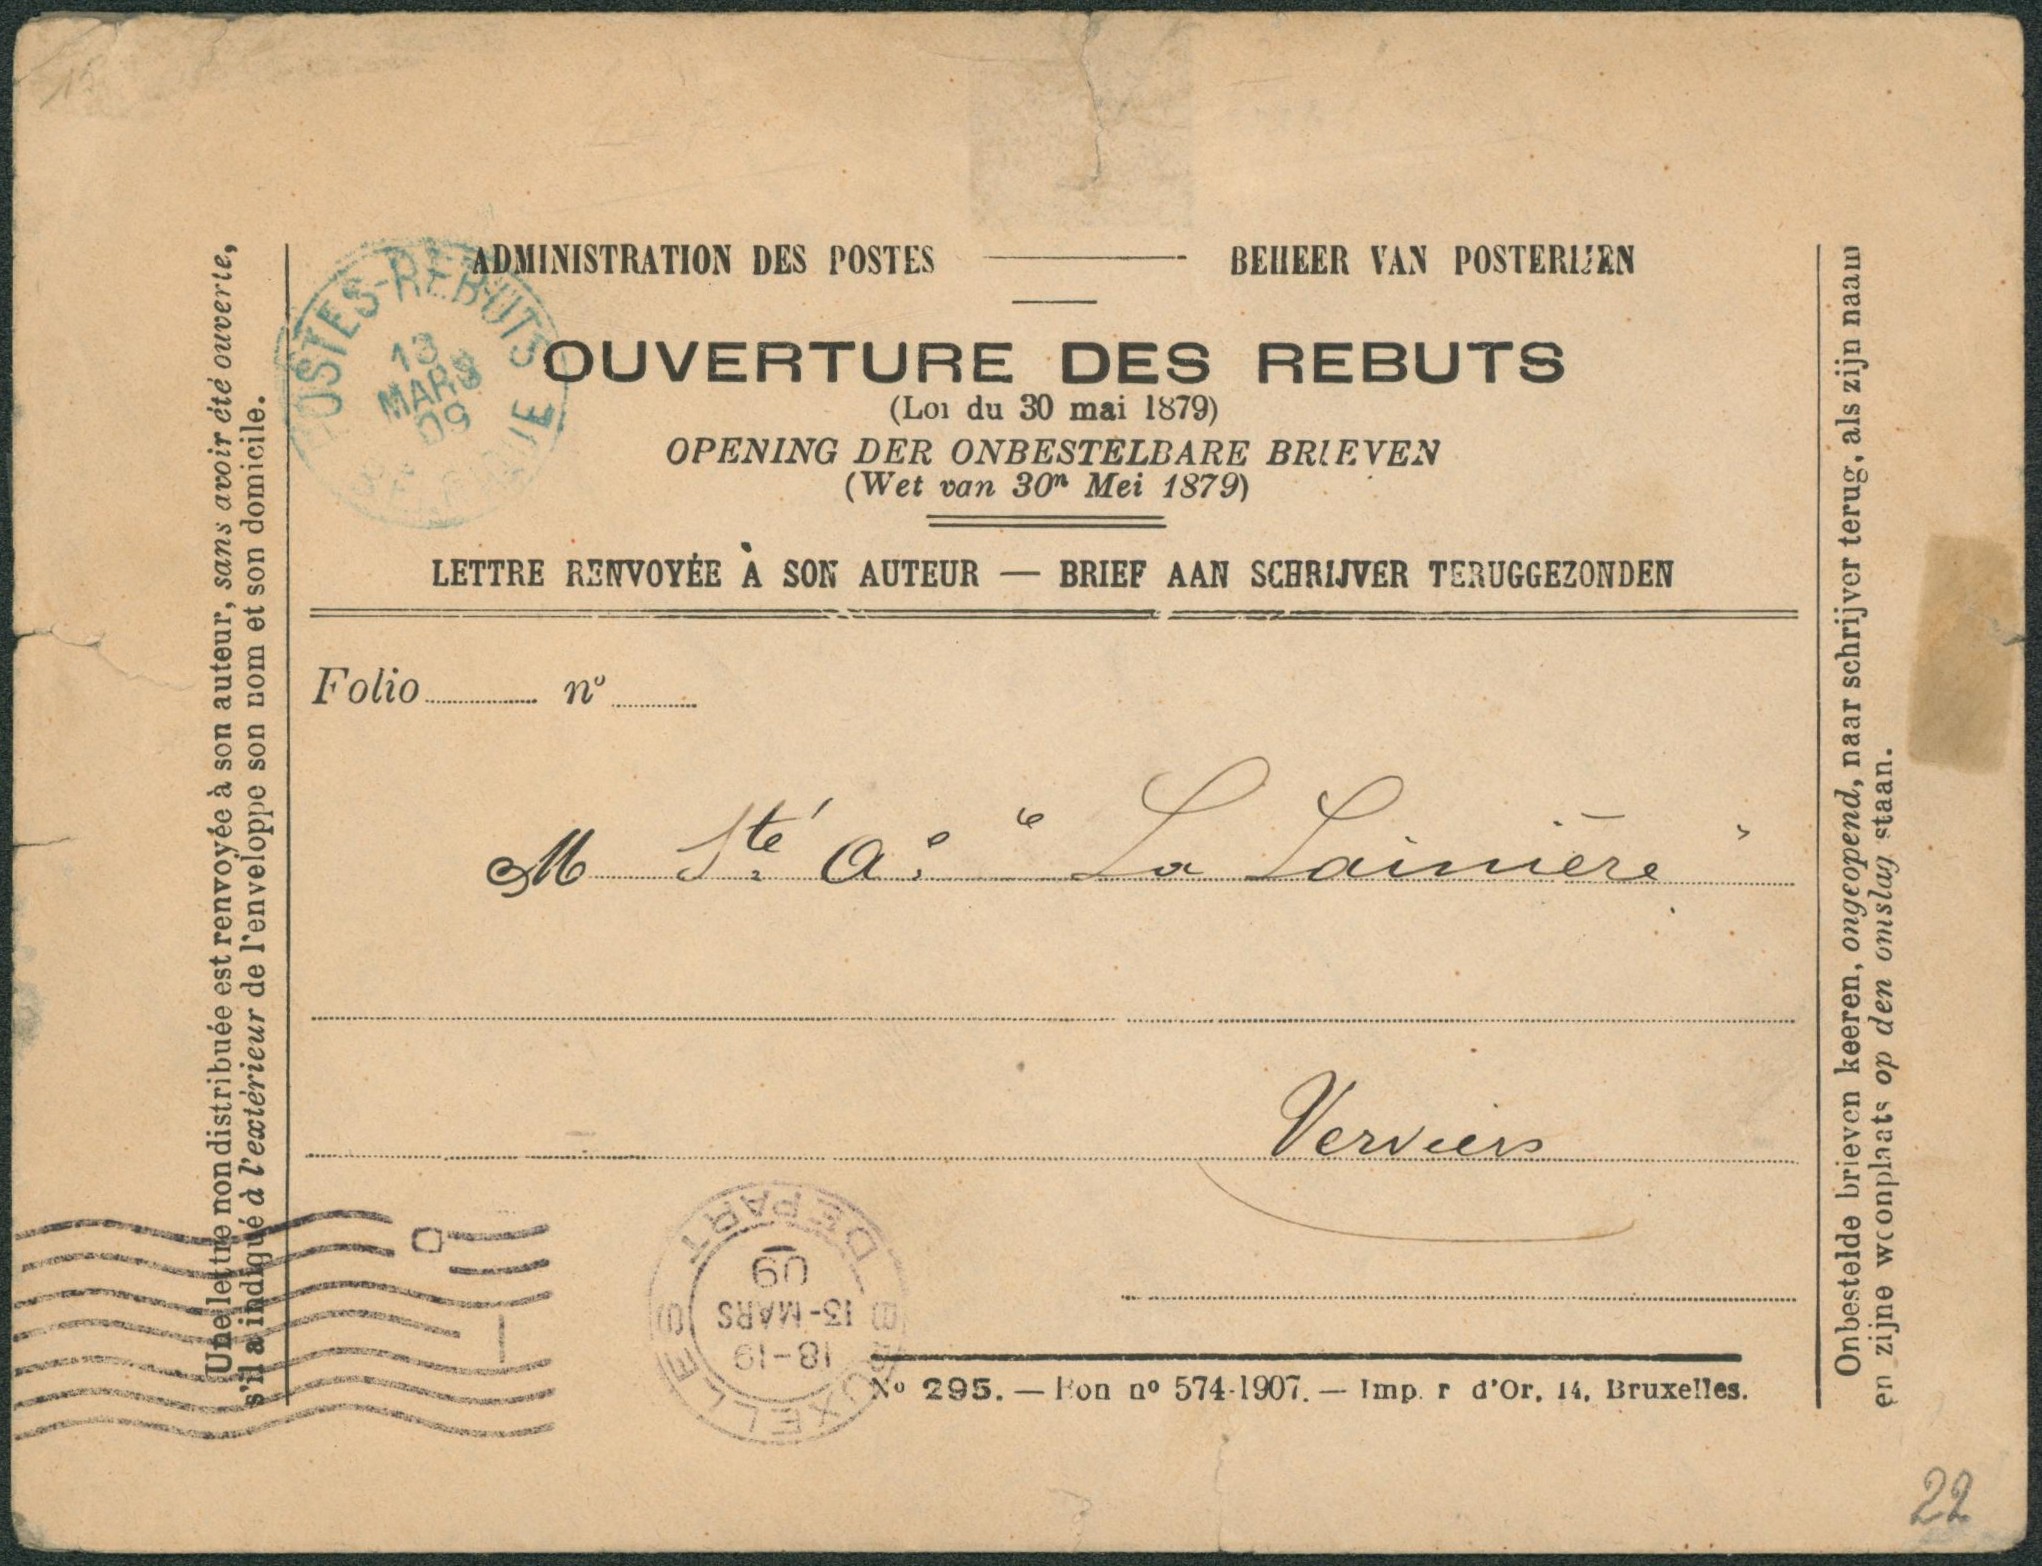 ADMINISTRATION DES POSTES — BEHEER VAN POSTERIJEN
POSTES-REBUTS
13
MARS
09
OUVERTURE DES REBUTS
(Loi du 30 mai 1879)
OPENING DER ONBESTELBARE BRIEVEN
(Wet van 30n Mei 1879)
LETTRE RENVOYÉE À SON AUTEUR — BRIEF AAN SCHRIJVER TERUGGEZONDEN
Folio n°
M Sté. Ae. "La Lainière"
Verviers
BRUXELLES (1) DEPART
18-19
13-MARS
09
No 295. — Bon no 574-1907. — Imp. r d'Or, 14, Bruxelles.
Une lettre non distribuée est renvoyée à son auteur, sans avoir été ouverte,
s'il a indiqué à l'extérieur de l'enveloppe son nom et son domicile.
Onbestelde brieven keeren, ongeopend, naar schrijver terug, als zijn naam
en zijne woonplaats op den omslag staan.
22